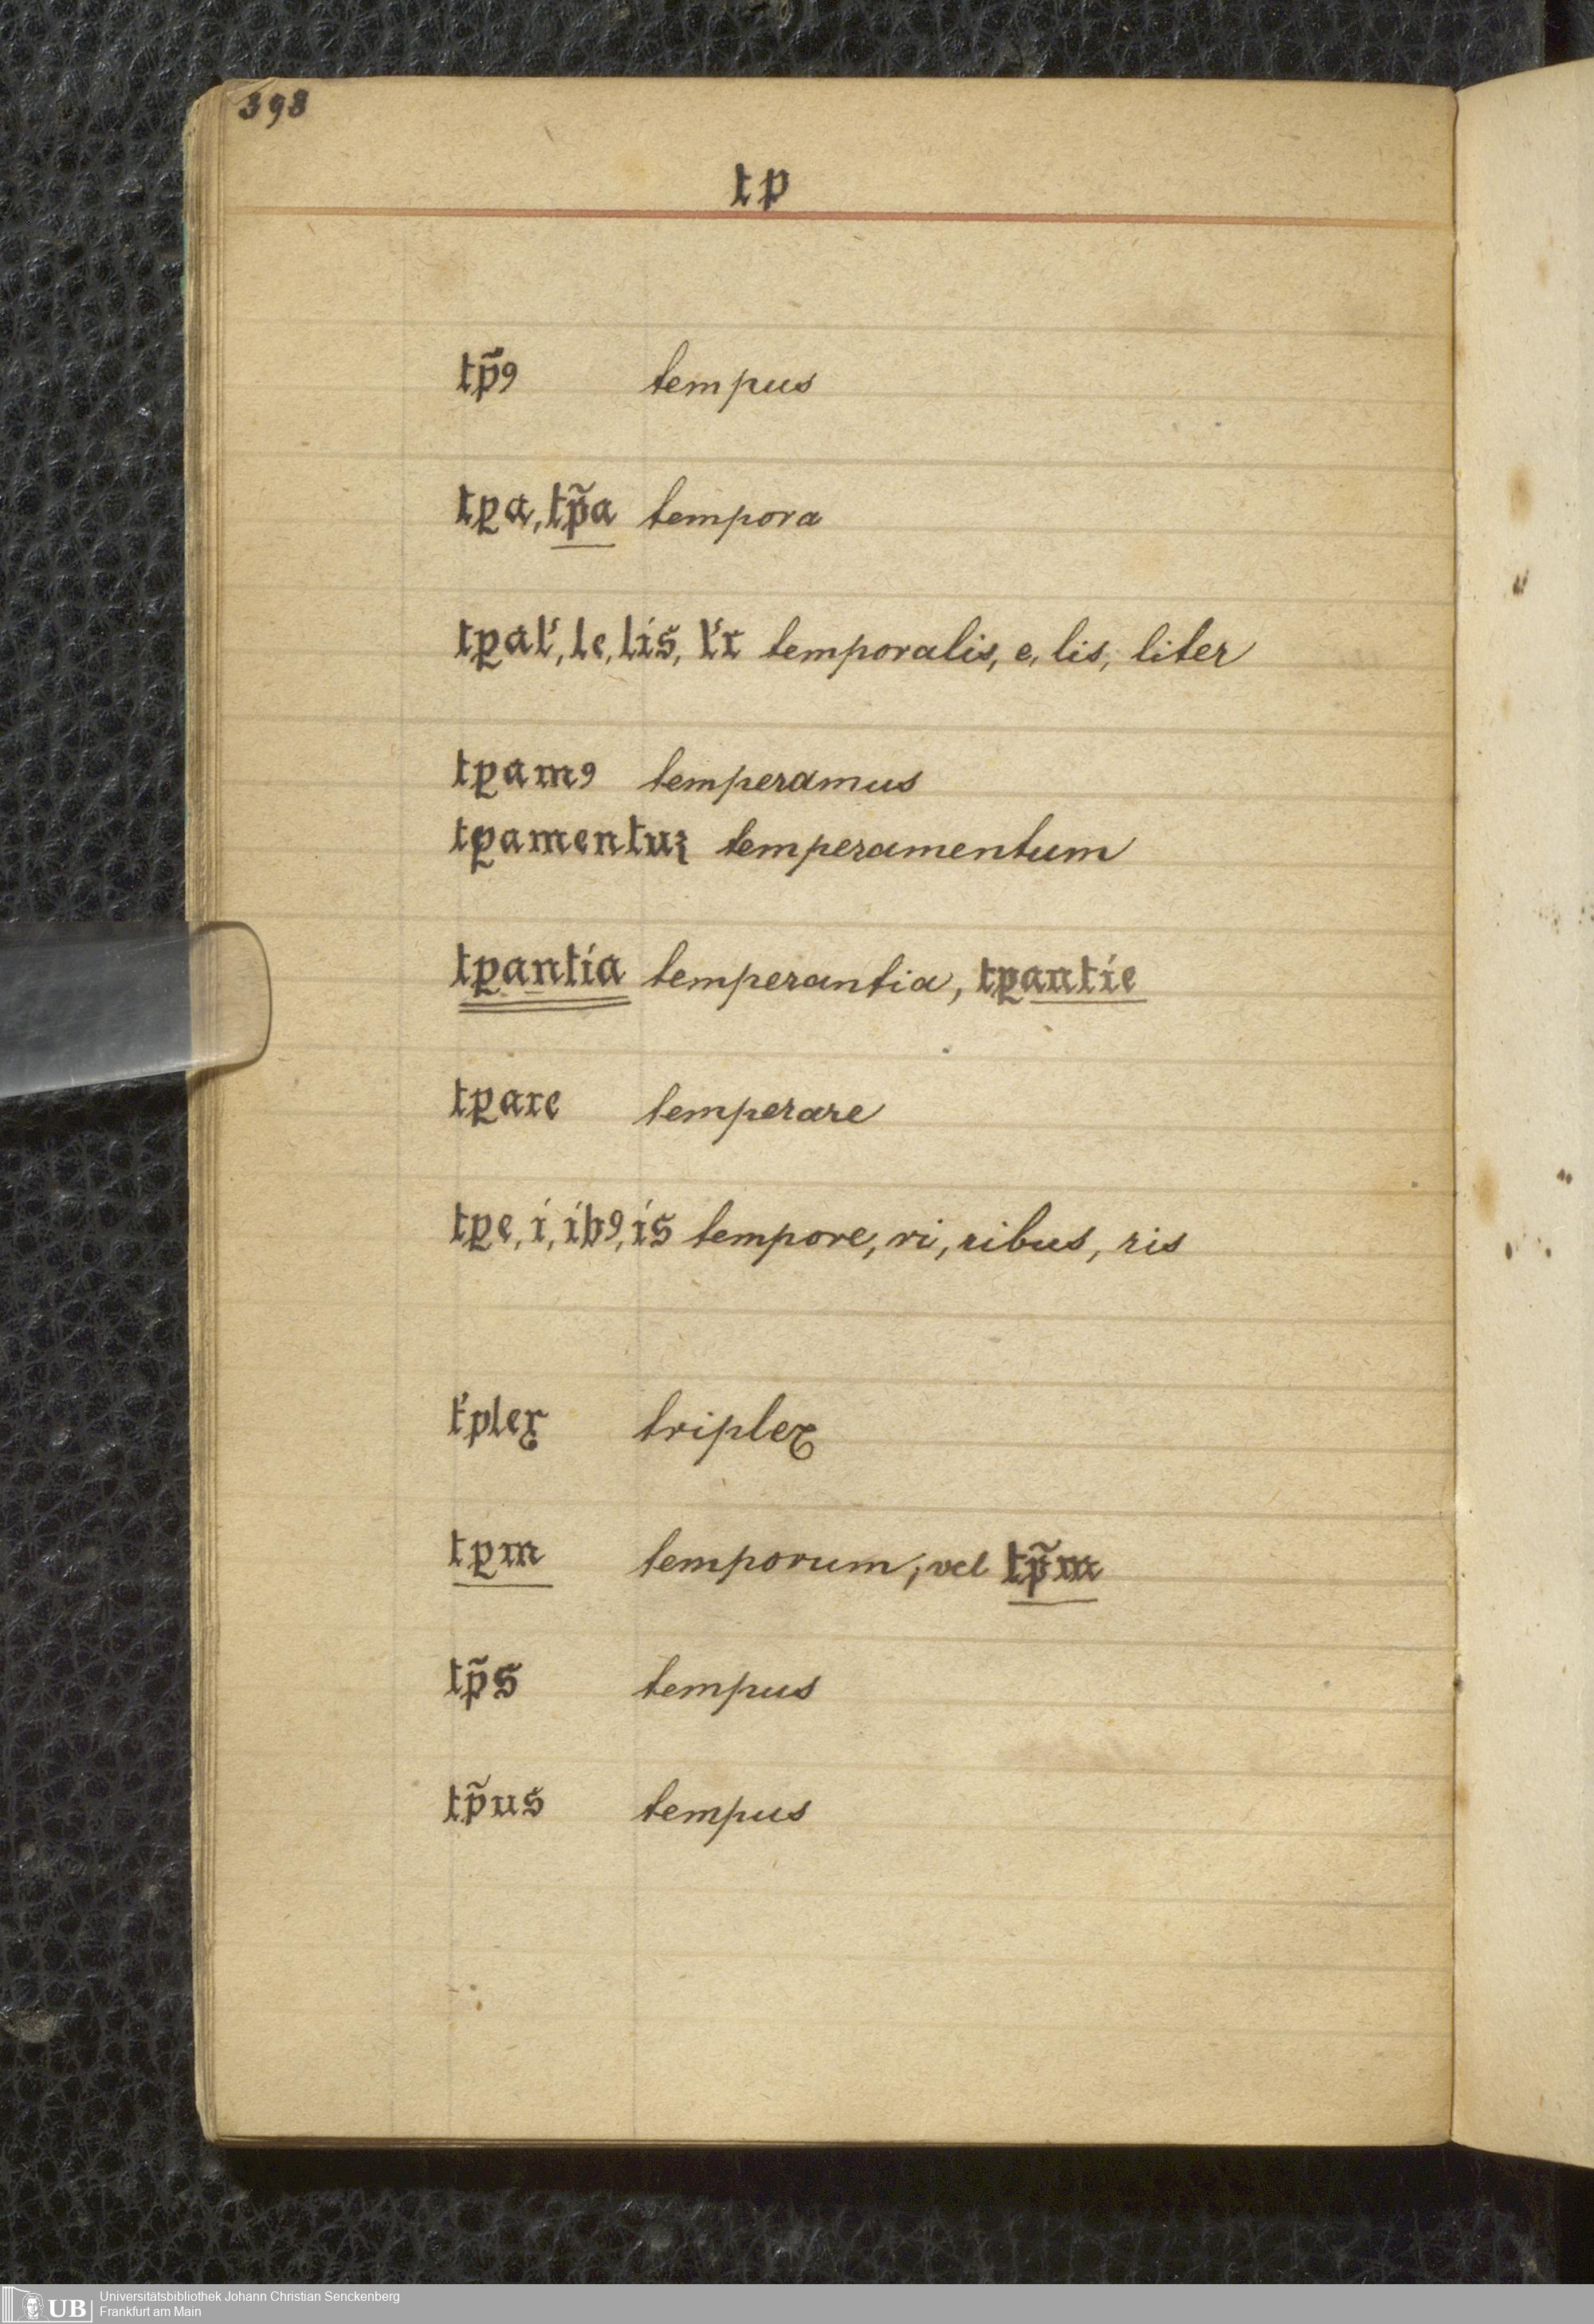 398
tp
tp̃ꝯ tempus
tꝑa, tp̃a tempora
tꝑal', le, lis, l'r temporalis, e, lis, liter
tꝑamꝯ temperamus
tꝑamentuꝫ temperamentum
tꝑantia temperantia, tꝑantie
tꝑare temperare
tꝑe, i, ibꝯ, is tempore, ri, ribus, ris
t'plex triplex
tꝑm temporum, vel tp̃m
tp̃s tempus
tp̃us tempus
UB Universitätsbibliothek Johann Christian Senckenberg
Frankfurt am Main